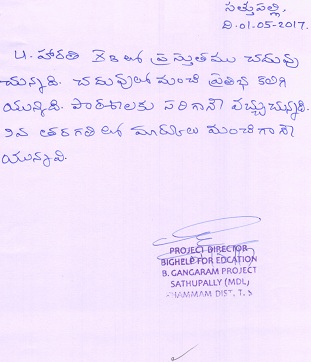 సత్తుపల్లి,
ది.01-05-2017.
U. హారతి BBలో ప్రస్తుతము చదువు
చున్నది. చదువులో మంచి ప్రతిభ కలిగి
యున్నది. పాఠశాలకు సరిగానే వచ్చుచున్నది.
9వ తరగతి లో మార్కులు మంచిగానే
యున్నవి.
PROJECT DIRECTOR
BIGHELP FOR EDCATION
B. GANGARAM PROJECT
SATHUPALLY (MDL)
KHAMMAM DIST. T. S